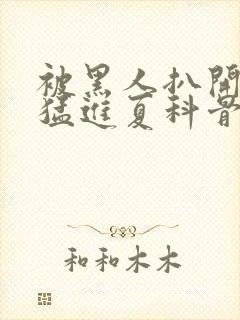 被黑人扒開
猛進夏科骨
和和木木